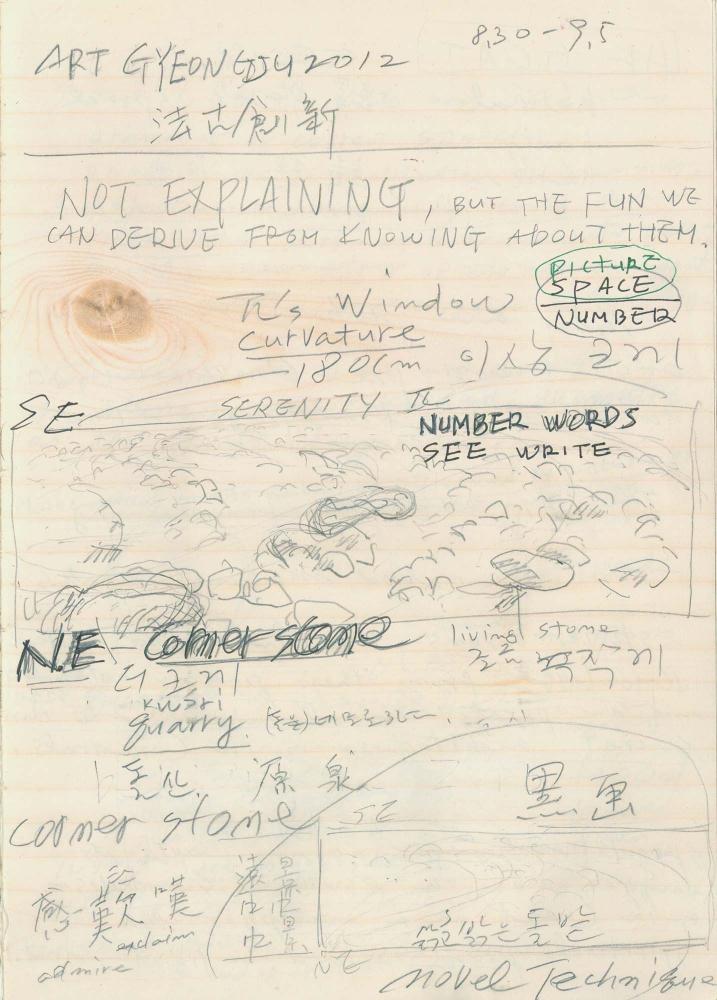 8,30 - 9,5
ART GYEONGJU 2012
法古創新
NOT EXPLAINING, BUT THE FUN WE
CAN DERIVE FROM KNOWING ABOUT THEM.
PICTURE
SPACE
NUMBER
π's Window
Curvature
180cm 이상 크게
SE
SERENITY π
NUMBER WORDS
SEE WRITE
N.E - corner stone
living stone
더 크게
quarry
돌산 源泉
黑画
corner stone
SE
感 歎 嘆
exclaim
admire
遠景
中景
NE
돌밭
novel Technique